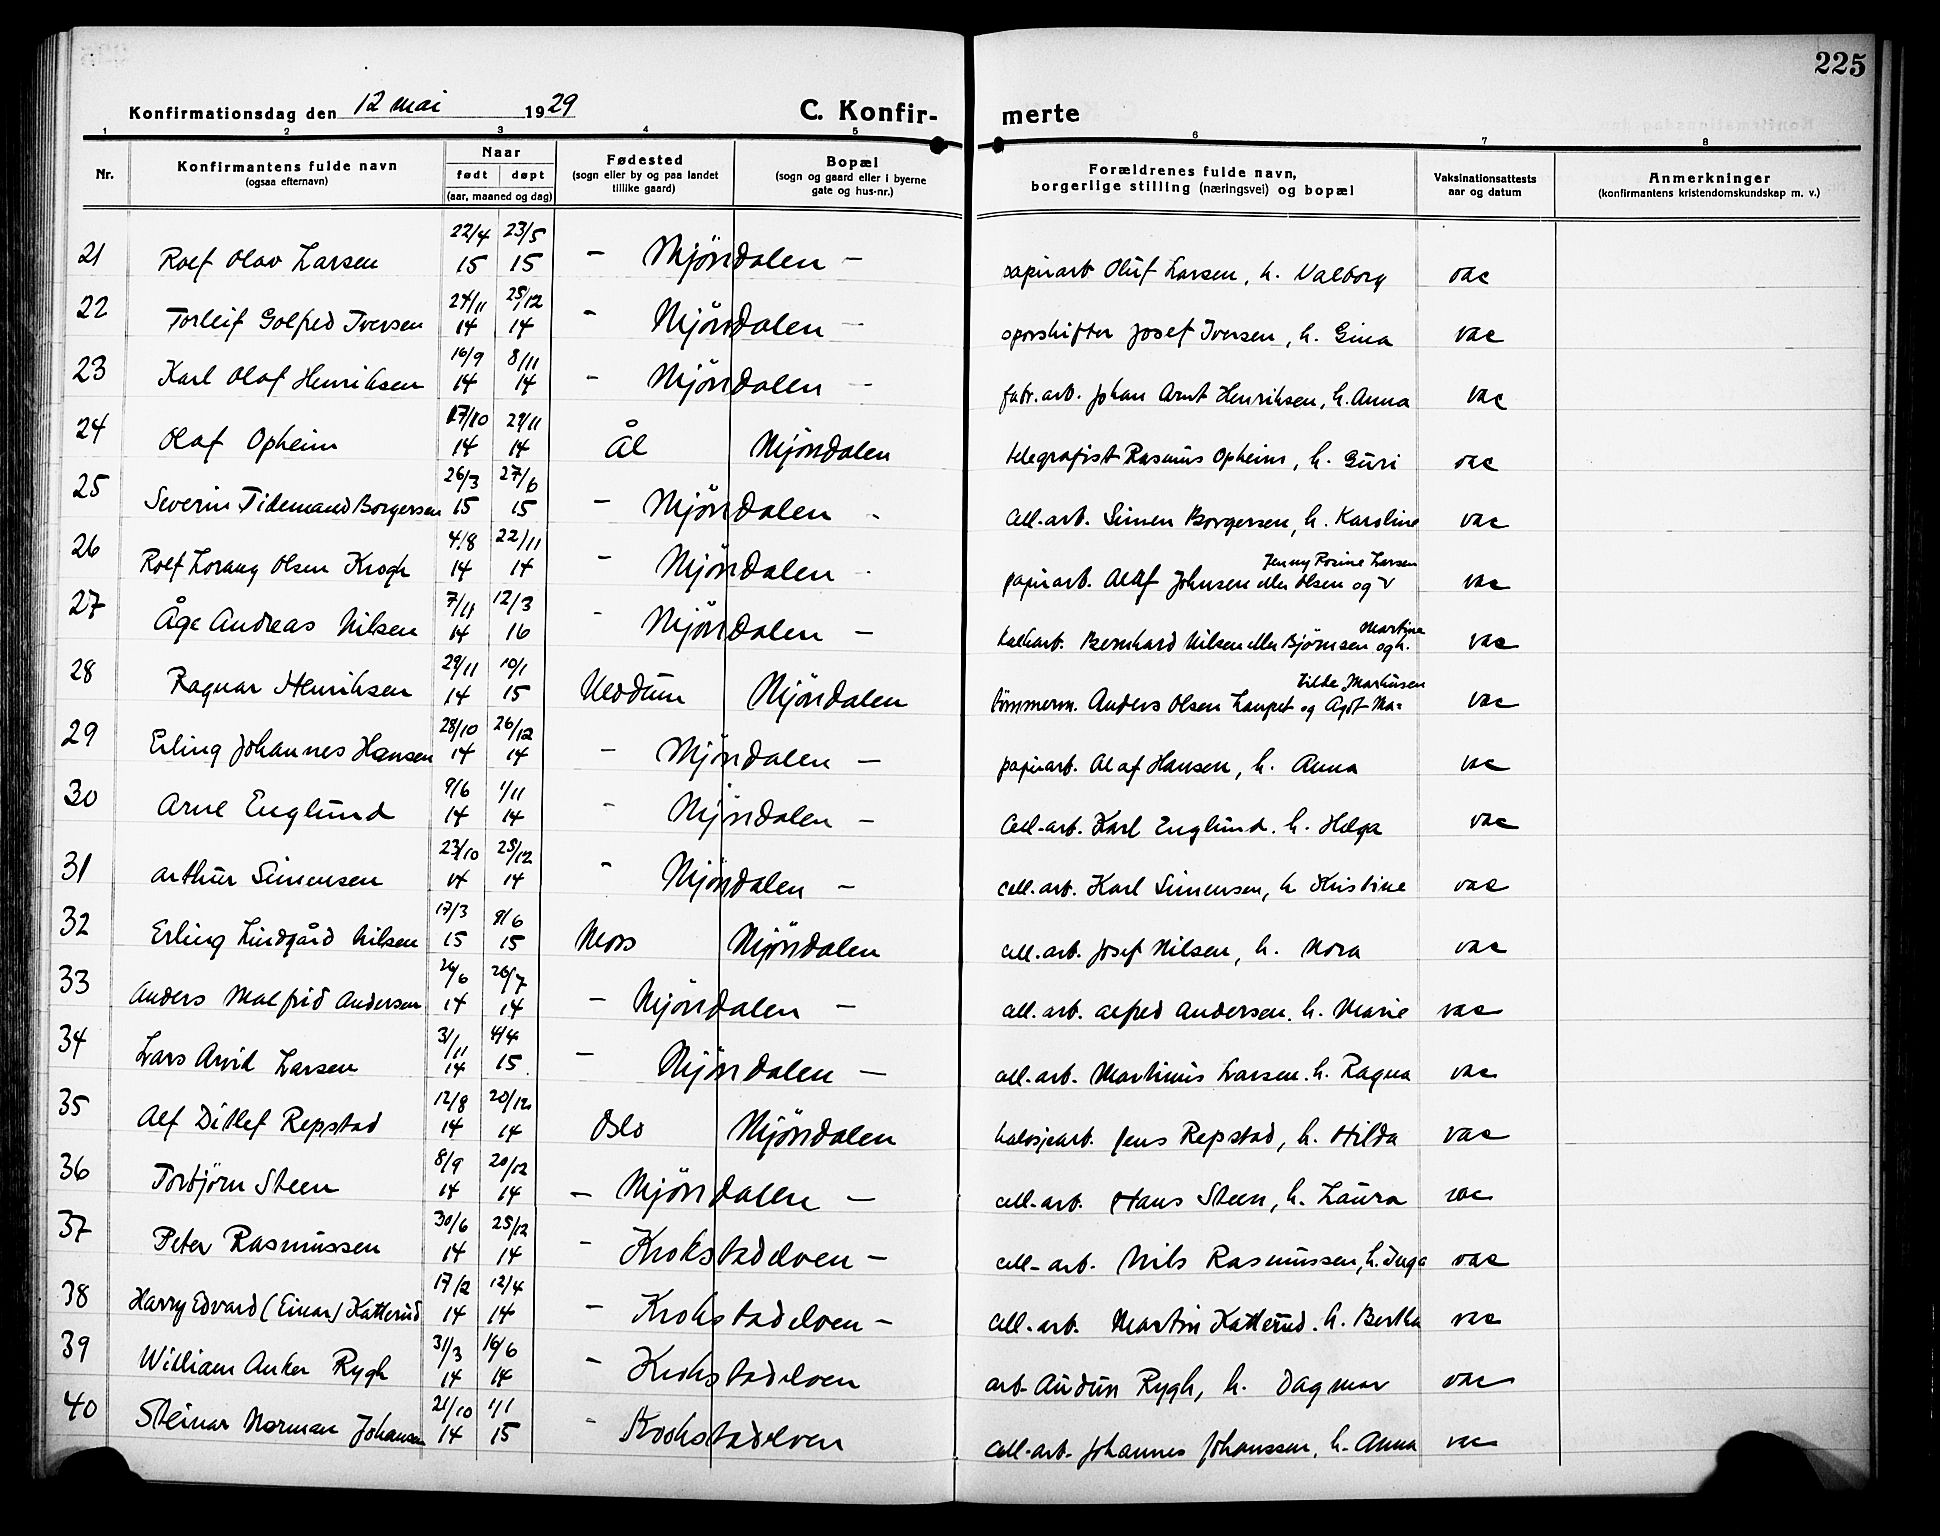 225
Konfirmationsdag den 12 mai 1929
C. Konfir- merte
1 2 3 4 5 6 7 8
Nr.
Konfirmantens fulde navn
(ogsaa efternavn)
Naar
født døpt
(aar, maaned og dag)
Fødested
(sogn eller by og paa landet
tillike gaard)
Bopæl
(sogn og gaard eller i byerne
gate og hus-nr.)
Forældrenes fulde navn,
borgerlige stilling (næringsvei) og bopæl
Vaksinationsattests
aar og datum
Anmerkninger
(konfirmantens kristendomskundskap m. v.)
21 Rolf Olav Larsen 22/4 15 23/5 15 - Mjöndalen - papirarb Oluf Larsen, h. Valborg vac
22 Torleif Golfred Iversen 24/11 14 25/12 14 - Mjöndalen - sporskifter Josef Iversen, h. Gina vac
23 Karl Olaf Henriksen 16/9 14 8/11 14 - Mjöndalen - fabr.arb. Johan Arnt Henriksen, h. Anna vac
24 Olaf Opheim 17/10 14 29/11 14 Ål Mjöndalen telegrafist Rasmus Opheim, h. Guri vac
25 Severin Tidemand Borgersen 26/3 15 27/6 15 - Mjöndalen - Cell-arb. Simen Borgersen, h. Karoline vac
26 Rolf Lorang Olsen Krogh 4/8 14 22/11 14 - Mjöndalen - papirarb. Olaf Johnsen eller Olsen og Jenny Rosine Larsen vac
27 Åge Andreas Nilsen 7/11 14 12/3 16 - Mjöndalen - kalkarb. Bernhard Nilsen eller Björnsen og h. Martine vac
28 Ragnar Henriksen 29/11 14 10/1 15 Modum Mjöndalen tömmerm. Anders Olsen og Agot Ma= tilde Markusen vac
29 Erling Johannes Hansen 28/10 14 26/12 14 - Mjöndalen - papirarb. Olaf Hansen, h. Anna vac
30 Arne Englund 9/6 14 1/11 14 - Mjöndalen - Cell-arb. Karl Englund. h. Helga vac
31 Arthur Simensen 23/10 14 25/12 14 - Mjöndalen - cell.arb. Karl Simensen, h Kristine vac
32 Erling Lindgård Nilsen 17/3 15 9/6 15 Moss Mjöndalen cell.arb. Josef Nilsen, h. Nora vac
33 Anders Malfrid Andersen 26/6 14 26/7 14 - Mjöndalen - cell. arb. Alfred Andersen. h. Marie vac
34 Lars Arvid Larsen 3/11 14 4/4 15 - Mjöndalen - cell.-arb. Martinius Larsen. h. Ragna vac
35 Alf Ditlef Reppstad 12/8 14 20/12 14 Oslo Mjöndalen Jens Repstad, h. Hilda vac
36 Torbjörn Steen 8/9 14 20/12 14 - Mjöndalen - cell-arb. Hans Steen, h. Laura vac
37 Peter Rasmussen 30/6 14 25/12 14 - Krokstadelven - cell-arb. Nils Rasmussen, h. Inga vac
38 Harry Edvard (Einar) Katterud 17/2 14 12/4 14 - Krokstadelven - cell.-arb. Martin Katterud. h. Bertha vac
39 William Anker Rygh 31/3 14 16/6 14 - Krokstadelven arb Audun Rygh, h. Dagmar vac
40 Steinar Norman Johansen 21/10 14 1/1 15 - Krokstadelven Cell-arb. Johannes Johanssen, h. Anna vac